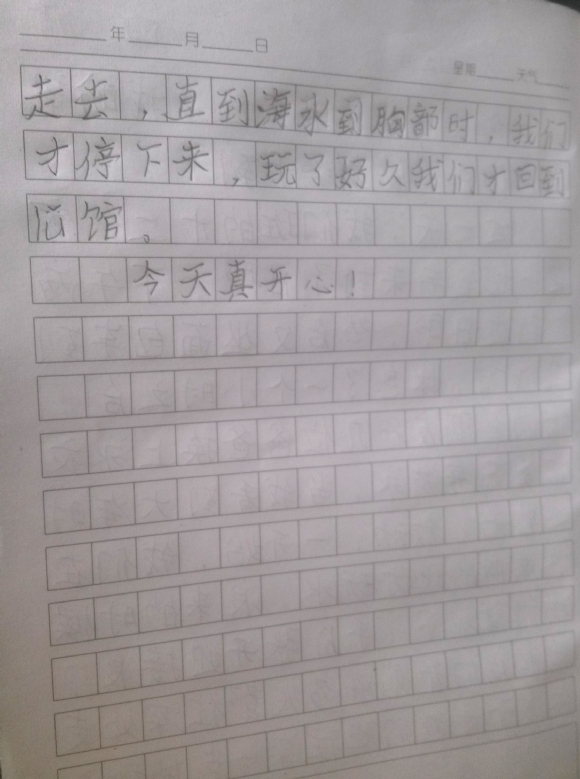 年 月 日
星期 天气
走去，直到海水到胸部时，我们
才停下来，玩了好久我们才回到
馆。
今天真开心！